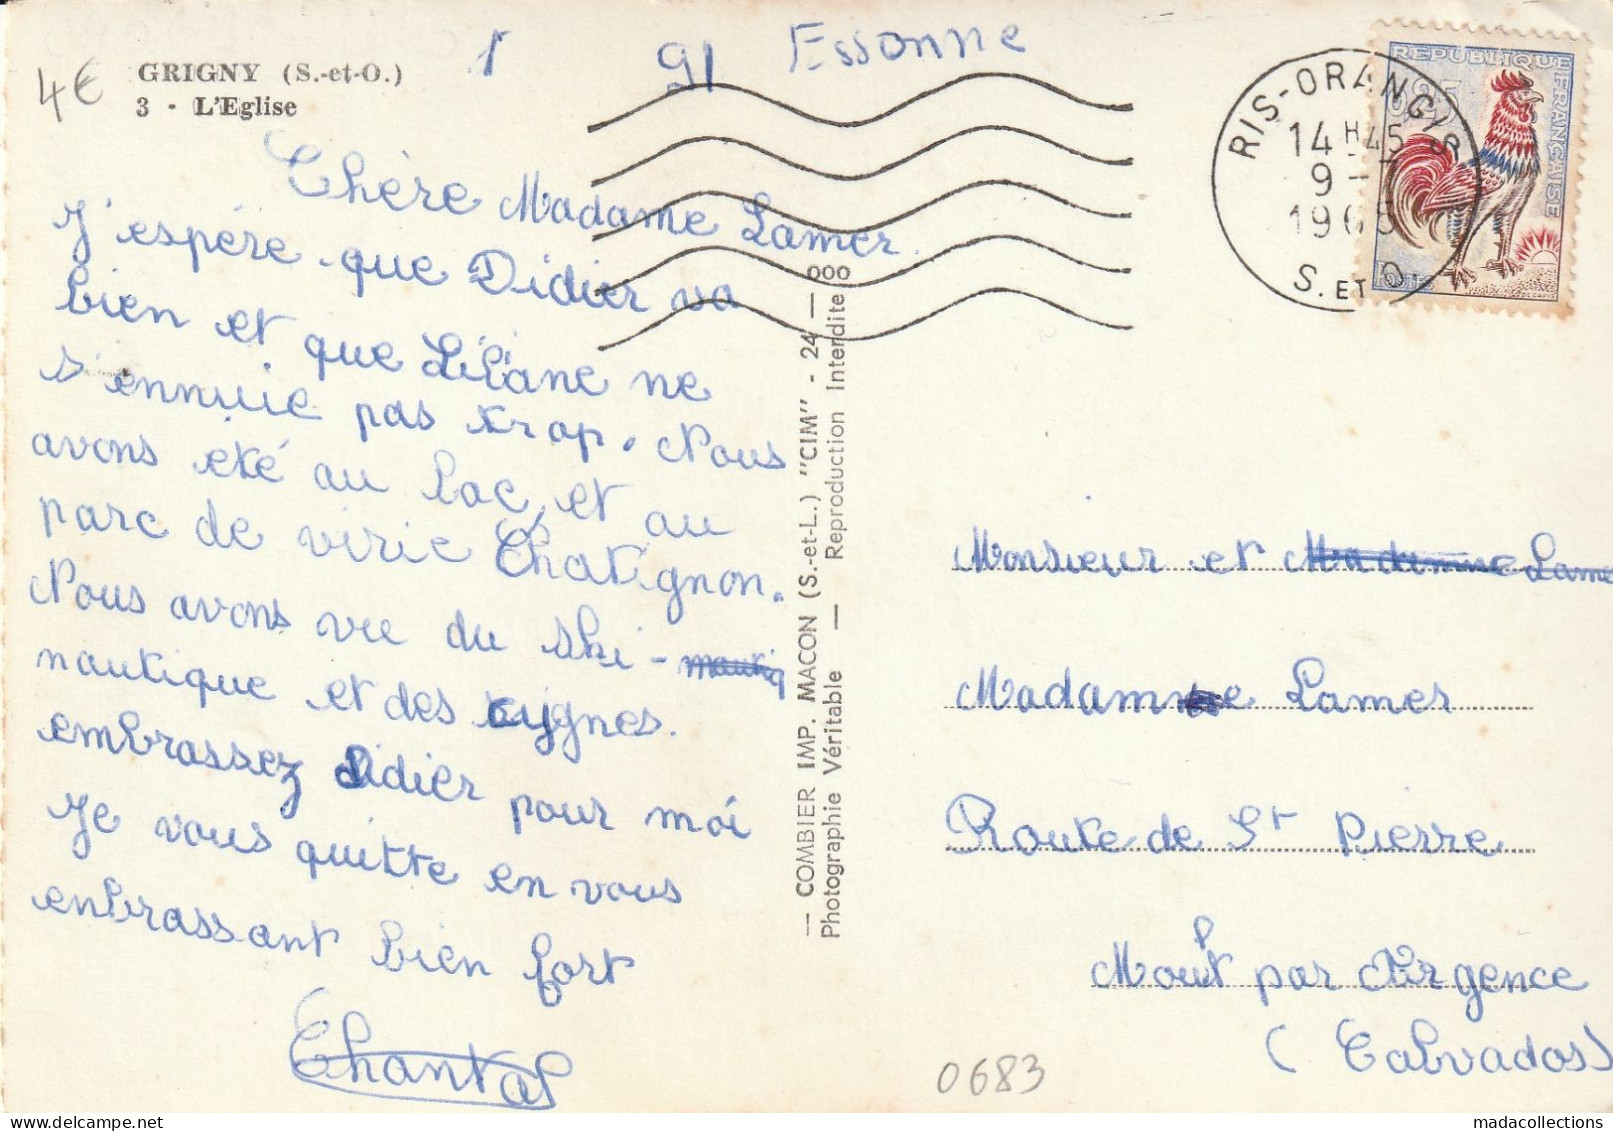 1 91 Essonne
4€
GRIGNY (S.-et-O.)
3 - L'Eglise
Chère Madame Lamer.
J'espére que Didier va
bien et que Liliane ne
s'ennuie pas trop. Nous
avons été au lac, et au
parc de virie Chatignon.
Nous avons vu du ski-nautiq
nautique et des cygnes.
embrassez Didier pour moi
Je vous quitte en vous
enbrassant bien fort
Chantal
— COMBIER IMP. MACON (S.-et-L.) "CIM" - 24 —
Photographie Véritable — Reproduction Interdite 000
RIS-ORANGIS
14 H 45
9 -
196
S. ET O.
REPUBLIQUE FRANÇAISE
0,25
POSTES
Monsieur et Madame Lame
Madame Lamer
Route de St Pierre
Moult par Argence
(Calvados)
0683
madacollections